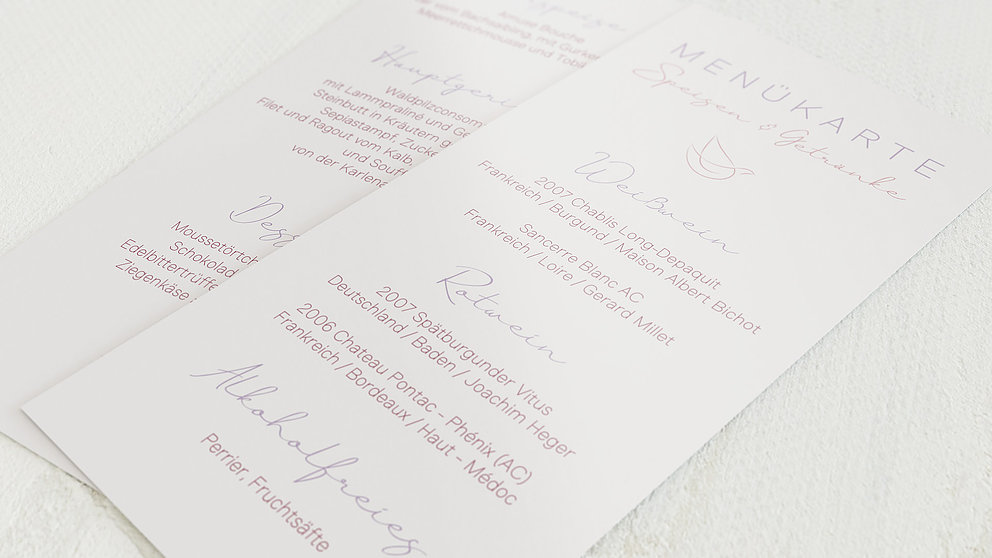 MENÜKARTE
Speisen & Getränke
Weißwein
2007 Chablis Long-Depaquit
Frankreich / Burgund / Maison Albert Bichot
Sancerre Blanc AC
Frankreich / Loire / Gerard Millet
Rotwein
2007 Spätburgunder Vitus
Deutschland / Baden / Joachim Heger
2006 Chateau Pontac - Phénix (AC)
Frankreich / Bordeaux / Haut - Médoc
Alkoholfreies
Perrier, Fruchtsäfte
Amuse Bouche
vom Bachsaibling, mit Gurken
Meerrettichmousse und Tobi
Hauptgeri
Waldpilzconsom
mit Lammpraliné und Ge
Steinbutt in Kräutern g
Sepiastampf, Zucke
Filet und Ragout vom Kalb,
und Souff
von der Karlene
Dess
Moussetörtch
Schokolad
Edelbittertrüffe
Ziegenkäse